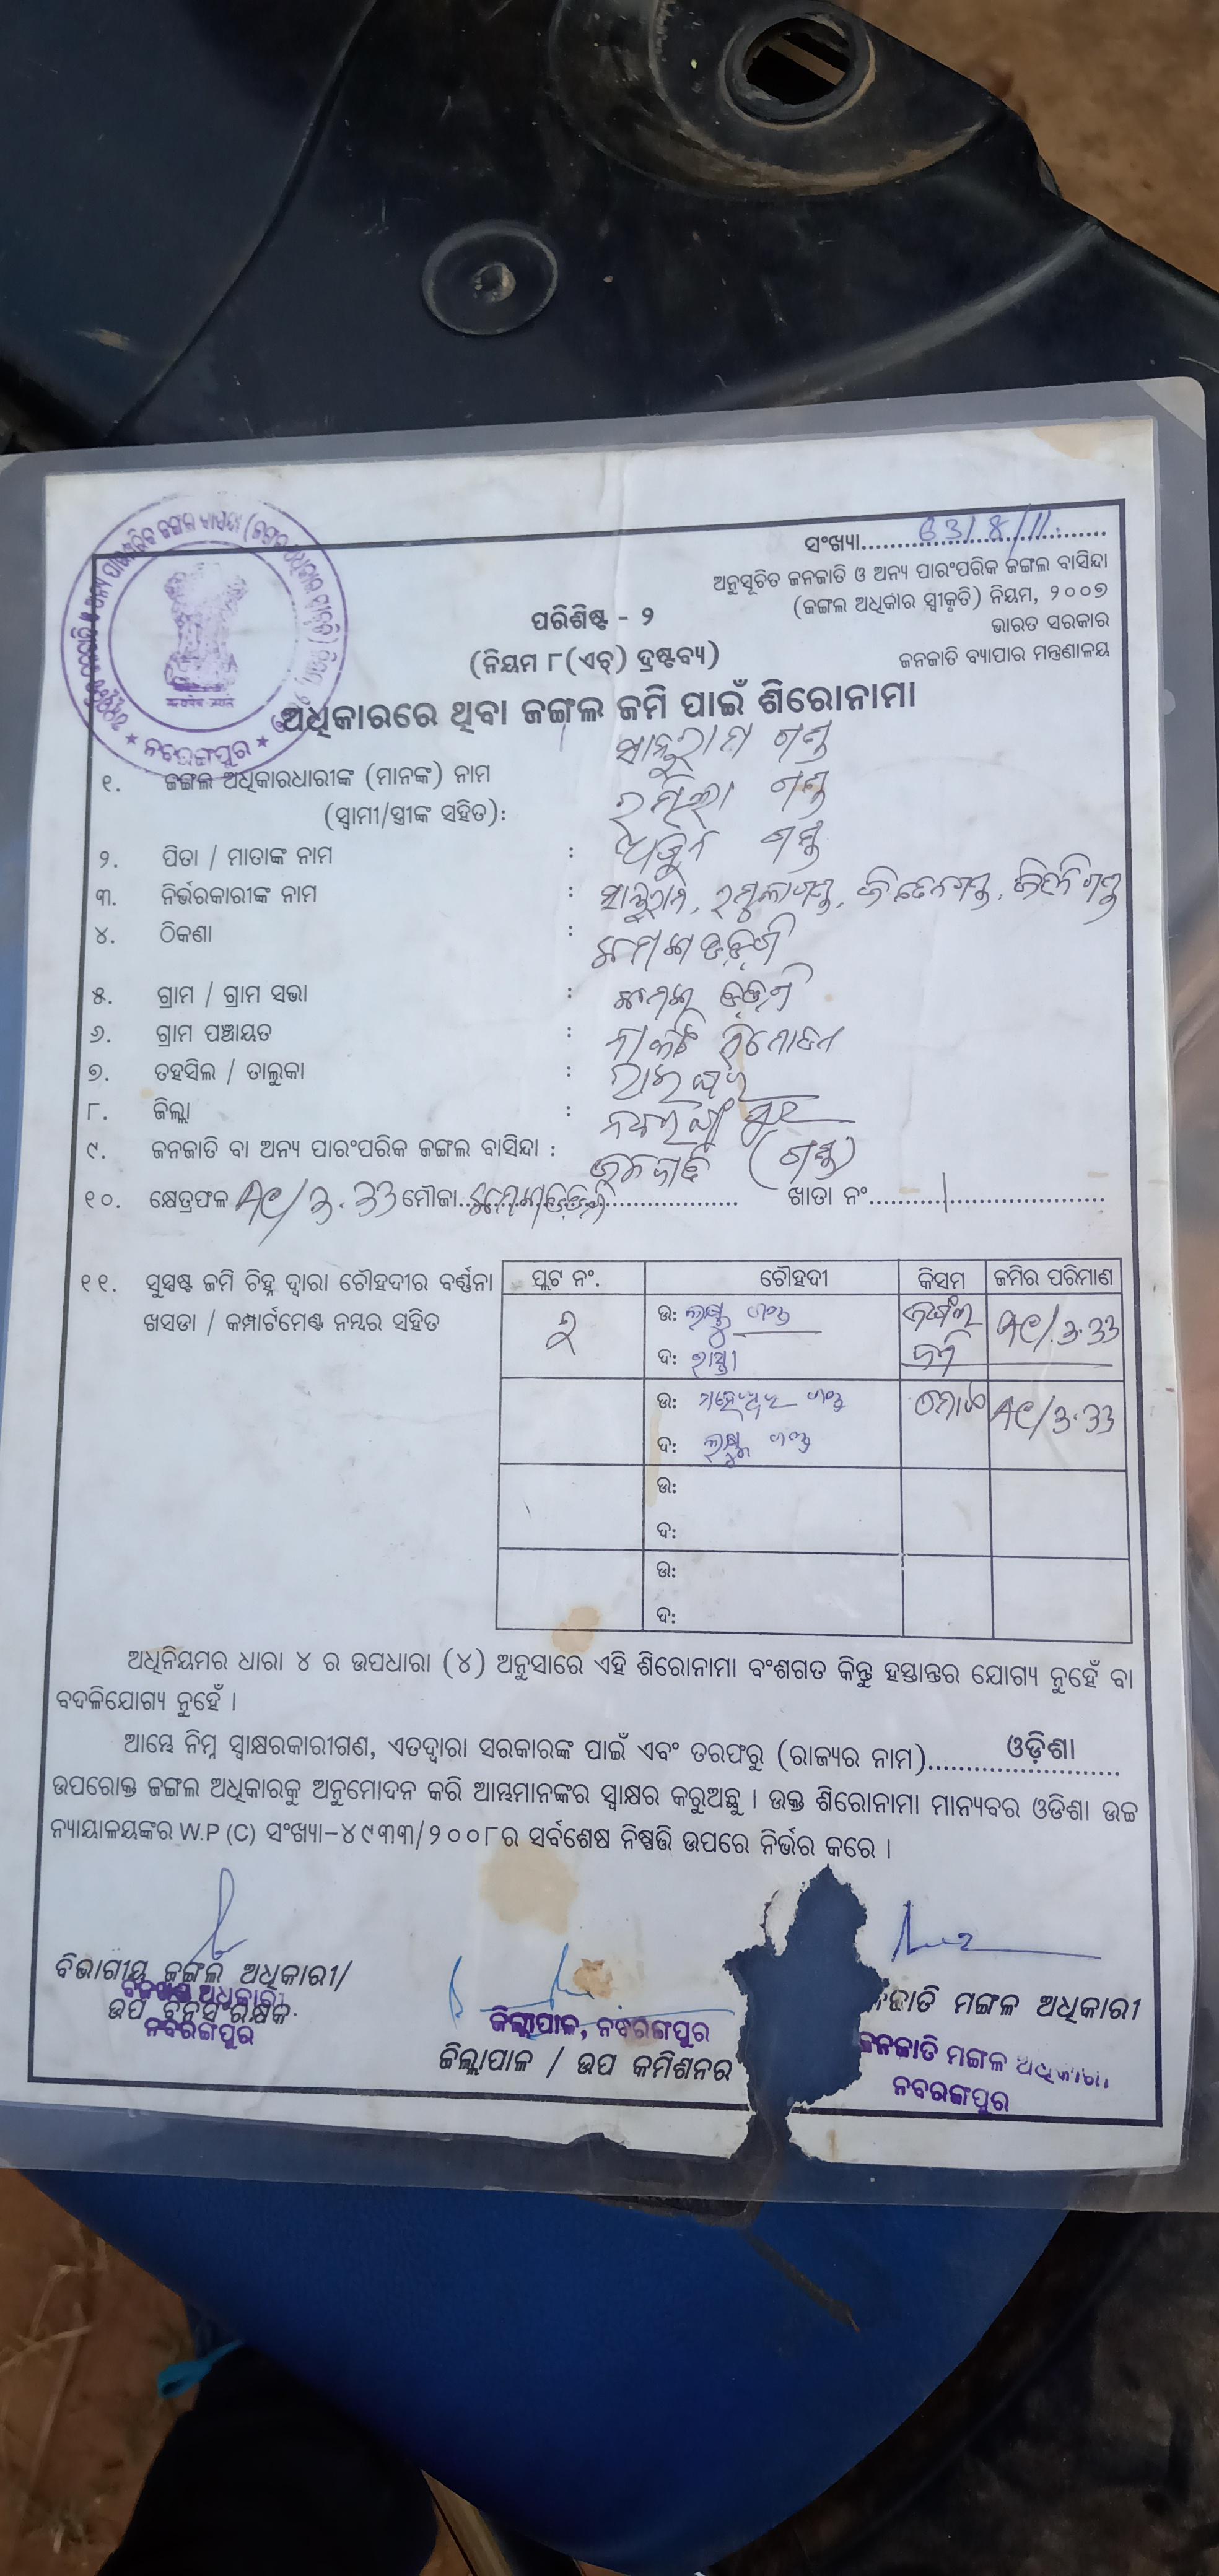 ସଂଖ୍ୟା..............63/8/11..............
ଅନୁସୂଚିତ ଜନଜାତି ଓ ଅନ୍ୟ ପାରଂପରିକ ଜଙ୍ଗଲ ବାସିନ୍ଦା
(ଜଙ୍ଗଲ ଅଧିକାର ସ୍ୱୀକୃତି) ନିୟମ, ୨୦୦୭
ଭାରତ ସରକାର
ଜନଜାତି ବ୍ୟାପାର ମନ୍ତ୍ରଣାଳୟ
ପରିଶିଷ୍ଟ - ୨
(ନିୟମ ୮(ଏଚ୍) ଦ୍ରଷ୍ଟବ୍ୟ)
ଅଧିକାରରେ ଥିବା ଜଙ୍ଗଲ ଜମି ପାଇଁ ଶିରୋନାମା
★ ନବରଙ୍ଗପୁର ★
୧. ଜଙ୍ଗଲ ଅଧିକାରଧାରୀଙ୍କ (ମାନଙ୍କ) ନାମ ଗଣ୍ଡ
(ସ୍ୱାମୀ/ସ୍ତ୍ରୀଙ୍କ ସହିତ): ଗଣ୍ଡ
୨. ପିତା / ମାତାଙ୍କ ନାମ : ଅର୍ଜୁନ ଗଣ୍ଡ
୩. ନିର୍ଭରକାରୀଙ୍କ ନାମ :
୪. ଠିକଣା :
୫. ଗ୍ରାମ / ଗ୍ରାମ ସଭା :
୬. ଗ୍ରାମ ପଞ୍ଚାୟତ :
୭. ତହସିଲ / ତାଲୁକା : ରାଇଘର
୮. ଜିଲ୍ଲା : ନବରଙ୍ଗପୁର
୯. ଜନଜାତି ବା ଅନ୍ୟ ପାରଂପରିକ ଜଙ୍ଗଲ ବାସିନ୍ଦା : ଜନଜାତି (ଗଣ୍ଡ)
୧୦. କ୍ଷେତ୍ରଫଳ AC/3.33 ମୌଜା.............. ଖାତା ନଂ..............
୧୧. ସୁସ୍ପଷ୍ଟ ଜମି ଚିହ୍ନ ଦ୍ୱାରା ଚୌହଦୀର ବର୍ଣ୍ଣନା
ଖସଡା / କମ୍ପାର୍ଟମେଣ୍ଟ ନମ୍ବର ସହିତ
ପ୍ଲଟ ନଂ. ଚୌହଦୀ କିସମ ଜମିର ପରିମାଣ
୨ ଉ: ଲକ୍ଷ୍ମୁ ଗଣ୍ଡ ଜଙ୍ଗଲ AC/.3.33
ଦ: ରାସ୍ତା ଜମି
ଉ: ମହେଶ୍ୱର ଗଣ୍ଡ ମୋଟ AC/3.33
ଦ: ଲକ୍ଷ୍ମୁ ଗଣ୍ଡ
ଉ:
ଦ:
ଉ:
ଦ:
ଅଧିନିୟମର ଧାରା ୪ ର ଉପଧାରା (୪) ଅନୁସାରେ ଏହି ଶିରୋନାମା ବଂଶଗତ କିନ୍ତୁ ହସ୍ତାନ୍ତର ଯୋଗ୍ୟ ନୁହେଁ ବା
ବଦଳିଯୋଗ୍ୟ ନୁହେଁ ।
ଆମ୍ଭେ ନିମ୍ନ ସ୍ୱାକ୍ଷରକାରୀଗଣ, ଏତଦ୍ଵାରା ସରକାରଙ୍କ ପାଇଁ ଏବଂ ତରଫରୁ (ରାଜ୍ୟର ନାମ)..........ଓଡ଼ିଶା..........
ଉପରୋକ୍ତ ଜଙ୍ଗଲ ଅଧିକାରକୁ ଅନୁମୋଦନ କରି ଆମ୍ଭମାନଙ୍କର ସ୍ୱାକ୍ଷର କରୁଅଛୁ । ଉକ୍ତ ଶିରୋନାମା ମାନ୍ୟବର ଓଡିଶା ଉଚ୍ଚ
ନ୍ୟାୟାଳୟଙ୍କର W.P (C) ସଂଖ୍ୟା-୪୯୩୩/୨୦୦୮ର ସର୍ବଶେଷ ନିଷ୍ପତ୍ତି ଉପରେ ନିର୍ଭର କରେ ।
ବିଭାଗୀୟ ଜଙ୍ଗଲ ଅଧିକାରୀ/
ବନଖଣ୍ଡ ଅଧିକାରୀ
ଉପ ବନସଂରକ୍ଷକ
ନବରଙ୍ଗପୁର
ଜିଲ୍ଲାପାଳ, ନବରଙ୍ଗପୁର
ଜିଲ୍ଲାପାଳ / ଉପ କମିଶନର
ଜନଜାତି ମଙ୍ଗଳ ଅଧିକାରୀ
ଜନଜାତି ମଙ୍ଗଳ ଅଧିକାରୀ
ନବରଙ୍ଗପୁର